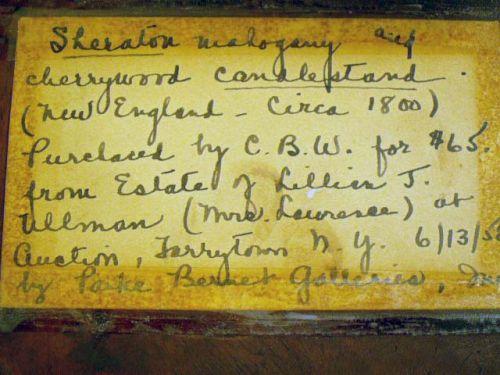 Sheraton mahogany and
cherrywood candlestand.
(New England - Circa 1800)
Purchased by C.B.W. for $65.
from Estate of Lillian J.
Ullman (Mrs. Lawrence) at
Auction, Tarrytown N.Y. 6/13/5
by Parke Bernet Galleries,